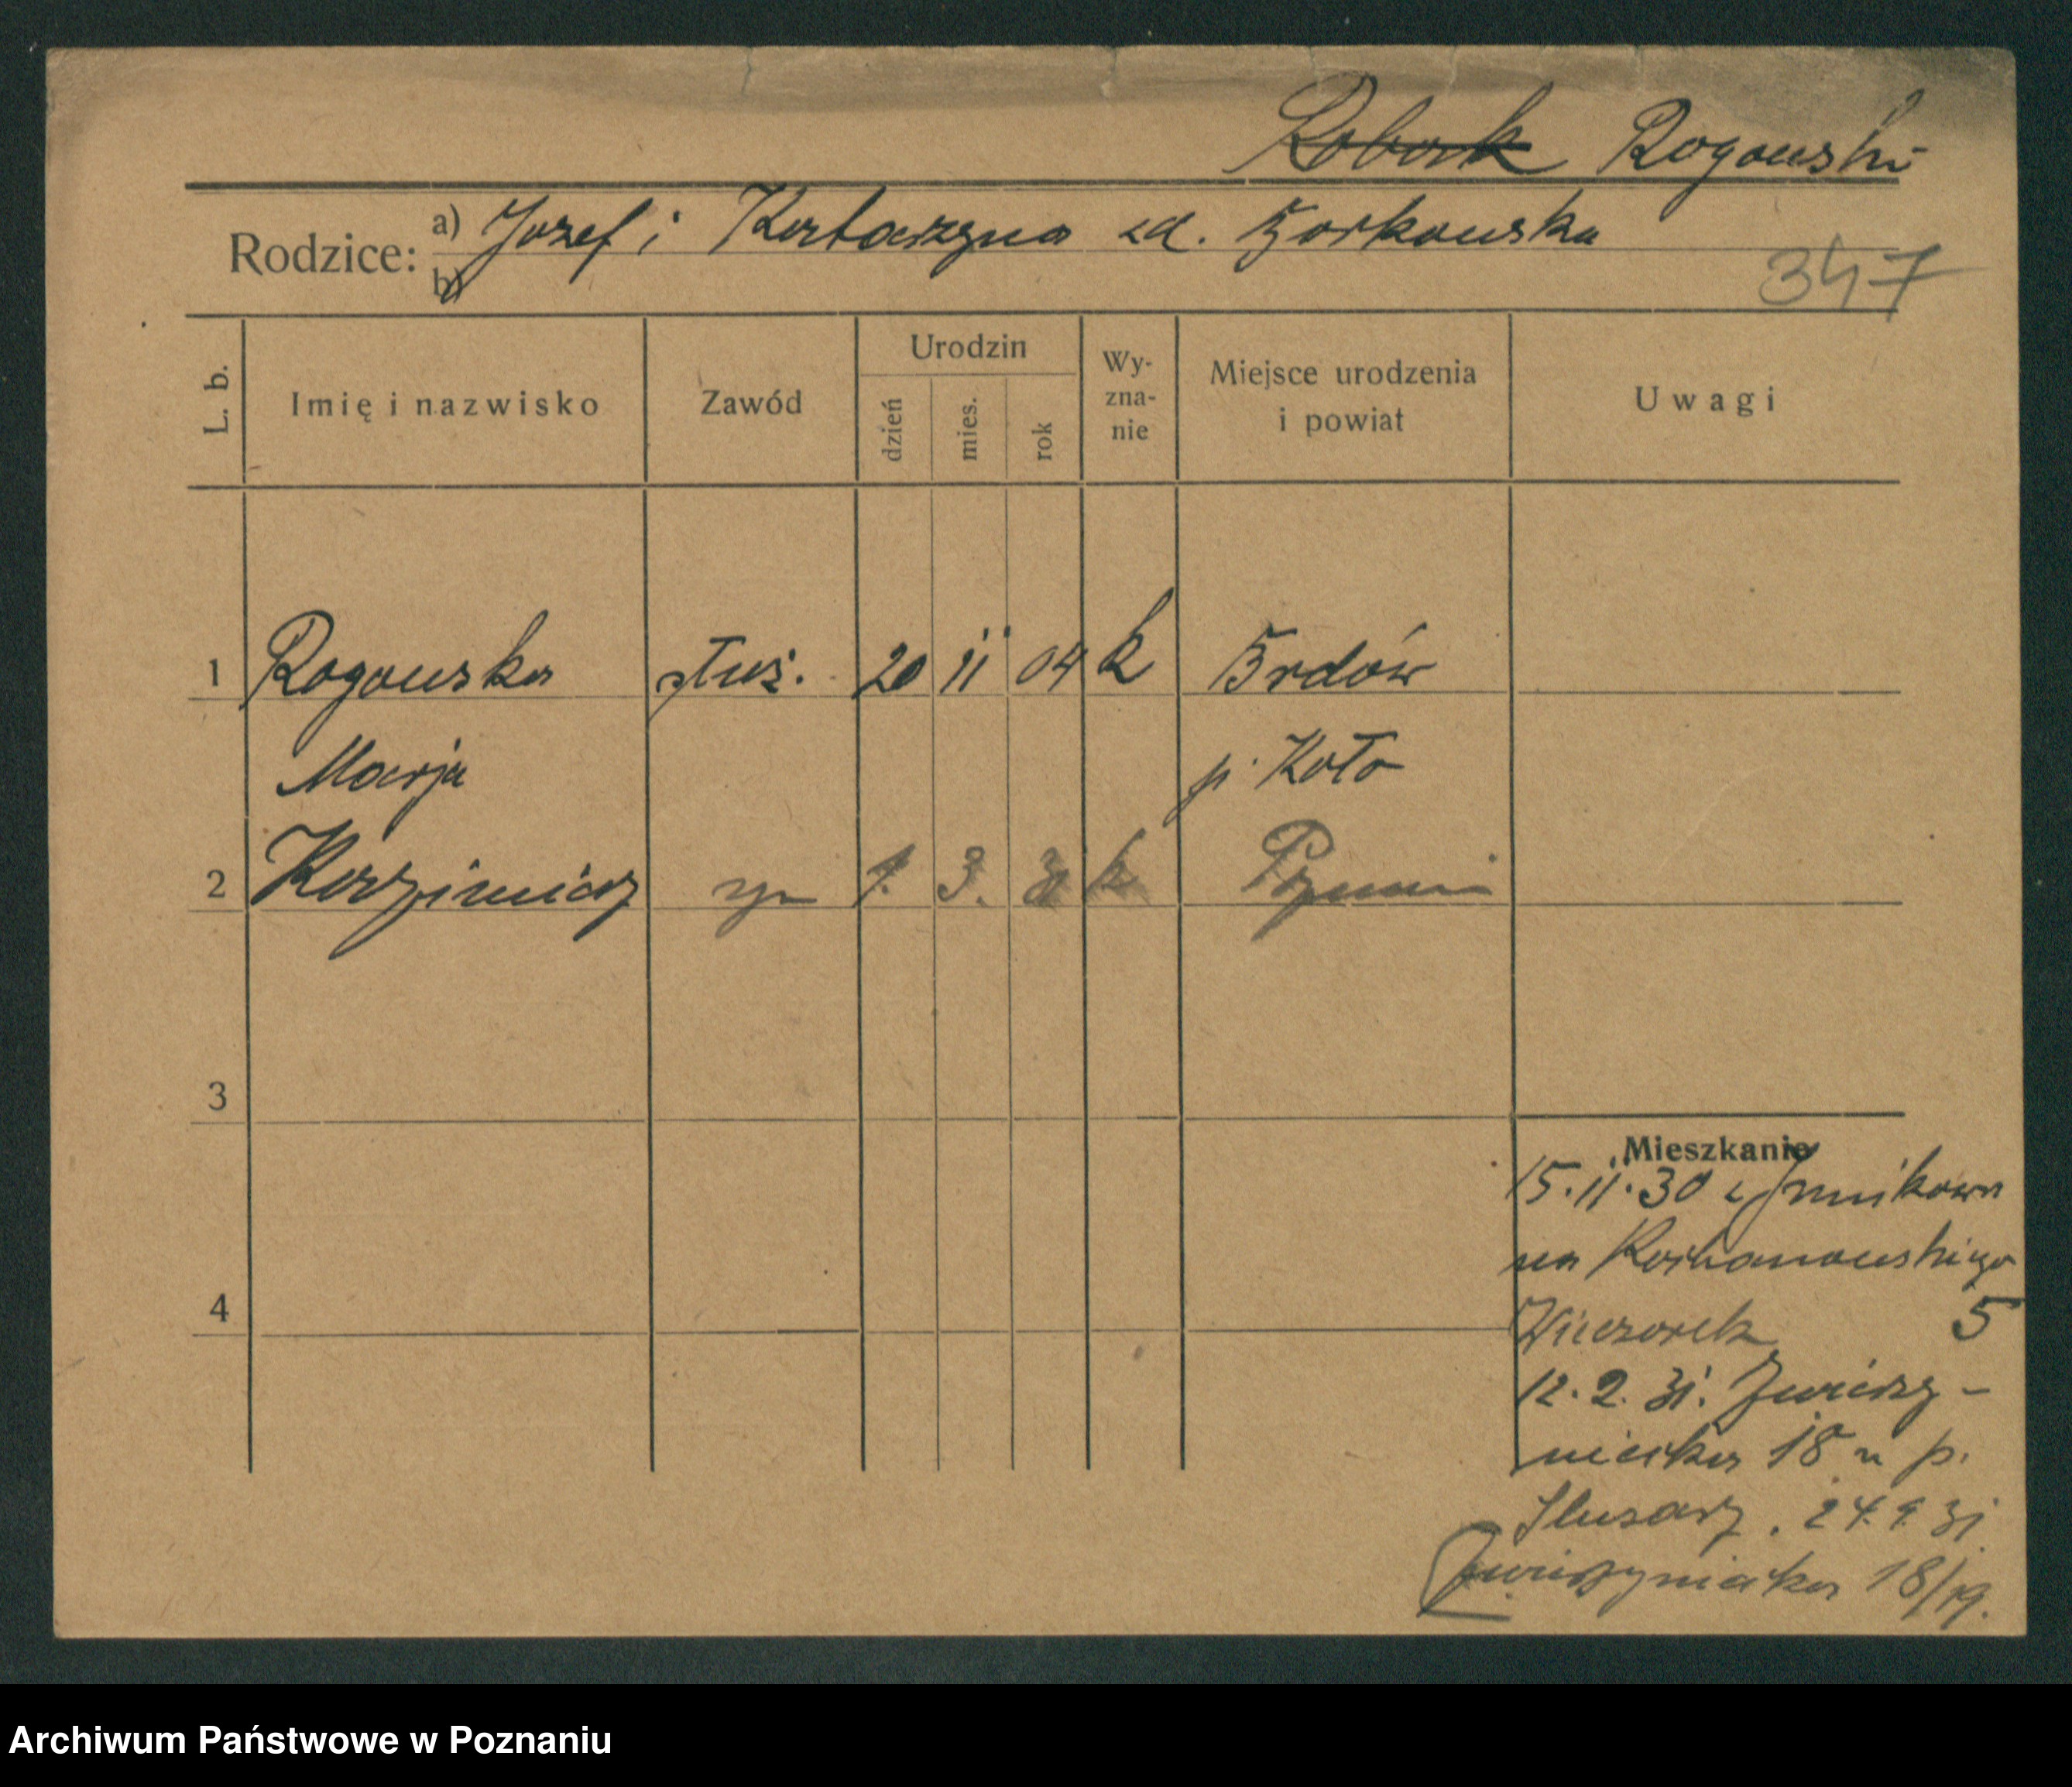 Robak Rogowski
Rodzice: a) Jozef i Katarzyna zd. Borkowska
b)
347
L. b.
Imię i nazwisko
Zawód
Urodzin
dzień
mies.
rok
Wy-
zna-
nie
Miejsce urodzenia
i powiat
Uwagi
1 Rogowska służ. 20 11 04 k Brdów
Marja p. Koło
2 Kazimierz syn 1. 3. k Poznań
3
4
Mieszkanie
15.11.30 z Janikowa
na Kochanowskiego
Wieczorek 5
12.2.31. Zwierzy-
niecka 18 u p.
Slusarz. 24.9.31
Zwierzyniecka 18/19.
Archiwum Państwowe w Poznaniu